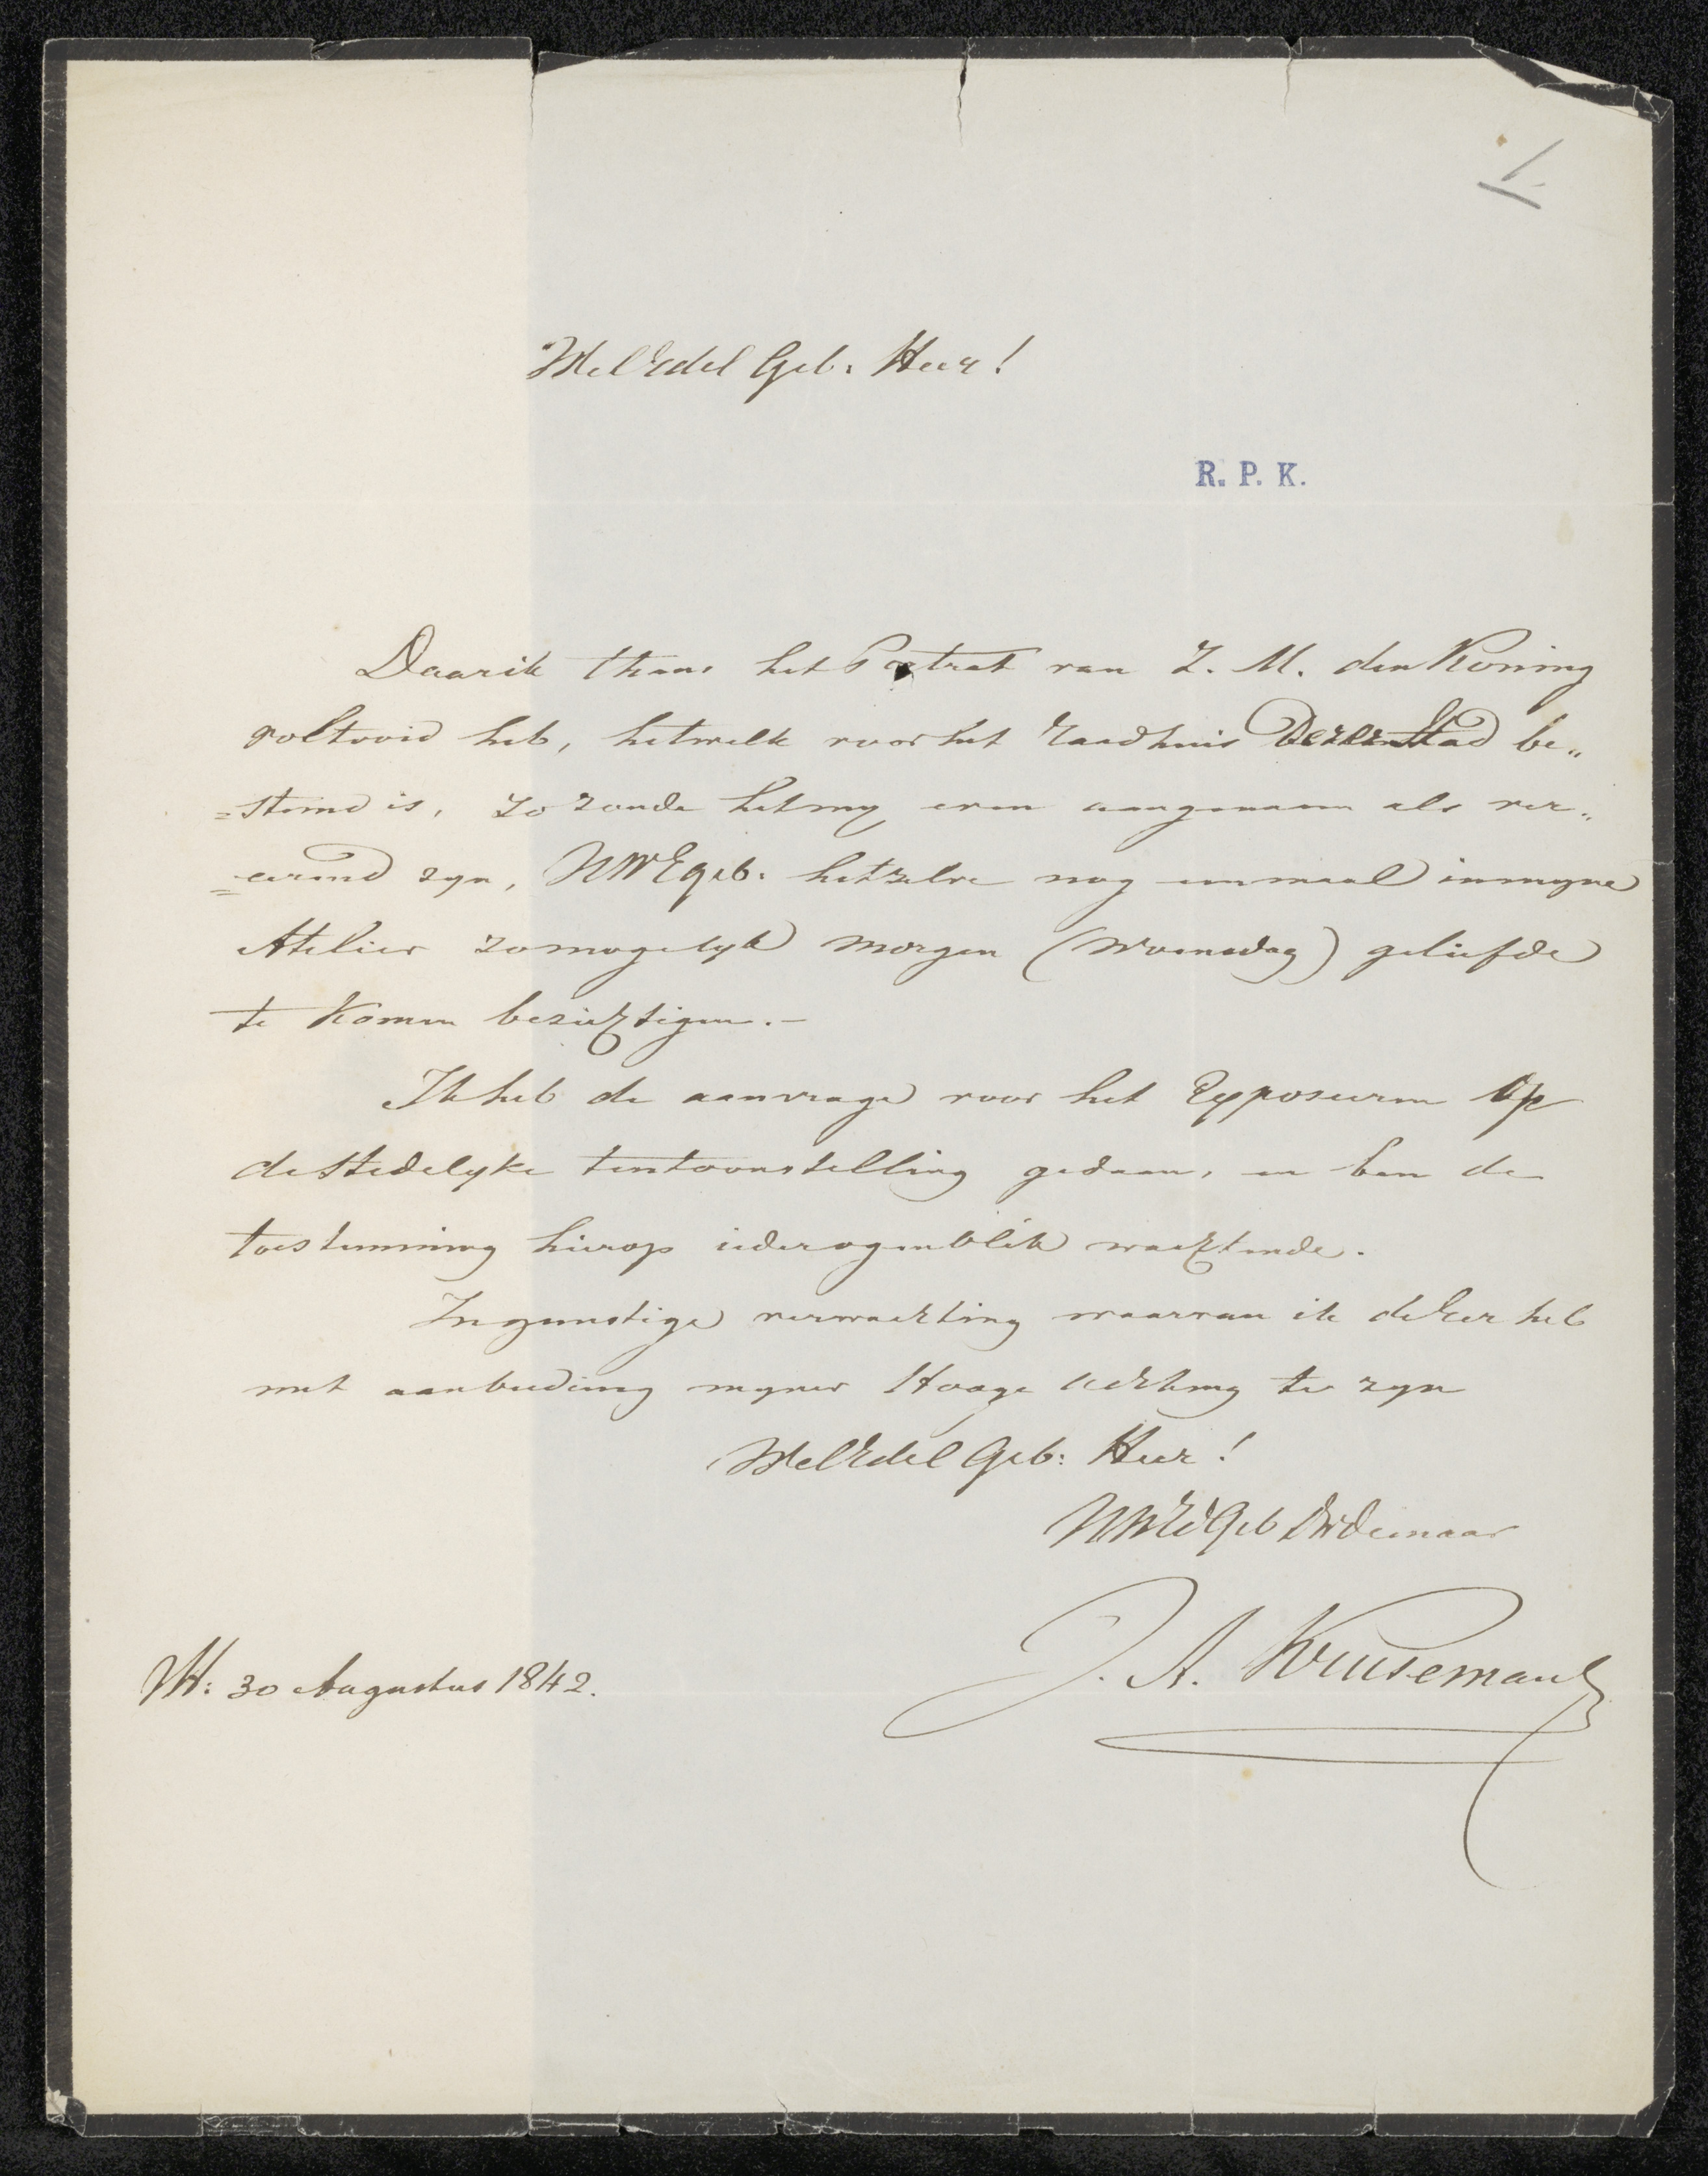 1.
WelEdel Geb: Heer!
R. P. K.
Daar ik thans het Portret van Z. M. den Koning
voltooid heb, hetwelk voor het Raadhuis dezer Stad be„
=stemd is, zo zoude het my even aangenaam als ver„
=eerend zyn, UWEgeb. hetzelve nog eenmaal in myne
Atelier zo mogelyk morgen (Woensdag) geliefde
te komen bezichtigen.—
Ik heb de aanvrage voor het Exposeeren op
de Stedelyke tentoonstelling gedaan, en ben de
toestemming hierop ieder ogenblik wachtende.
In gunstige verwachting waarvan ik de Eer heb
met aanbieding myner Hooge achting te zyn
WelEdel Geb: Heer!
UWEdGeb DwDienaar
J. A. Kruseman
30 Augustus 1842.